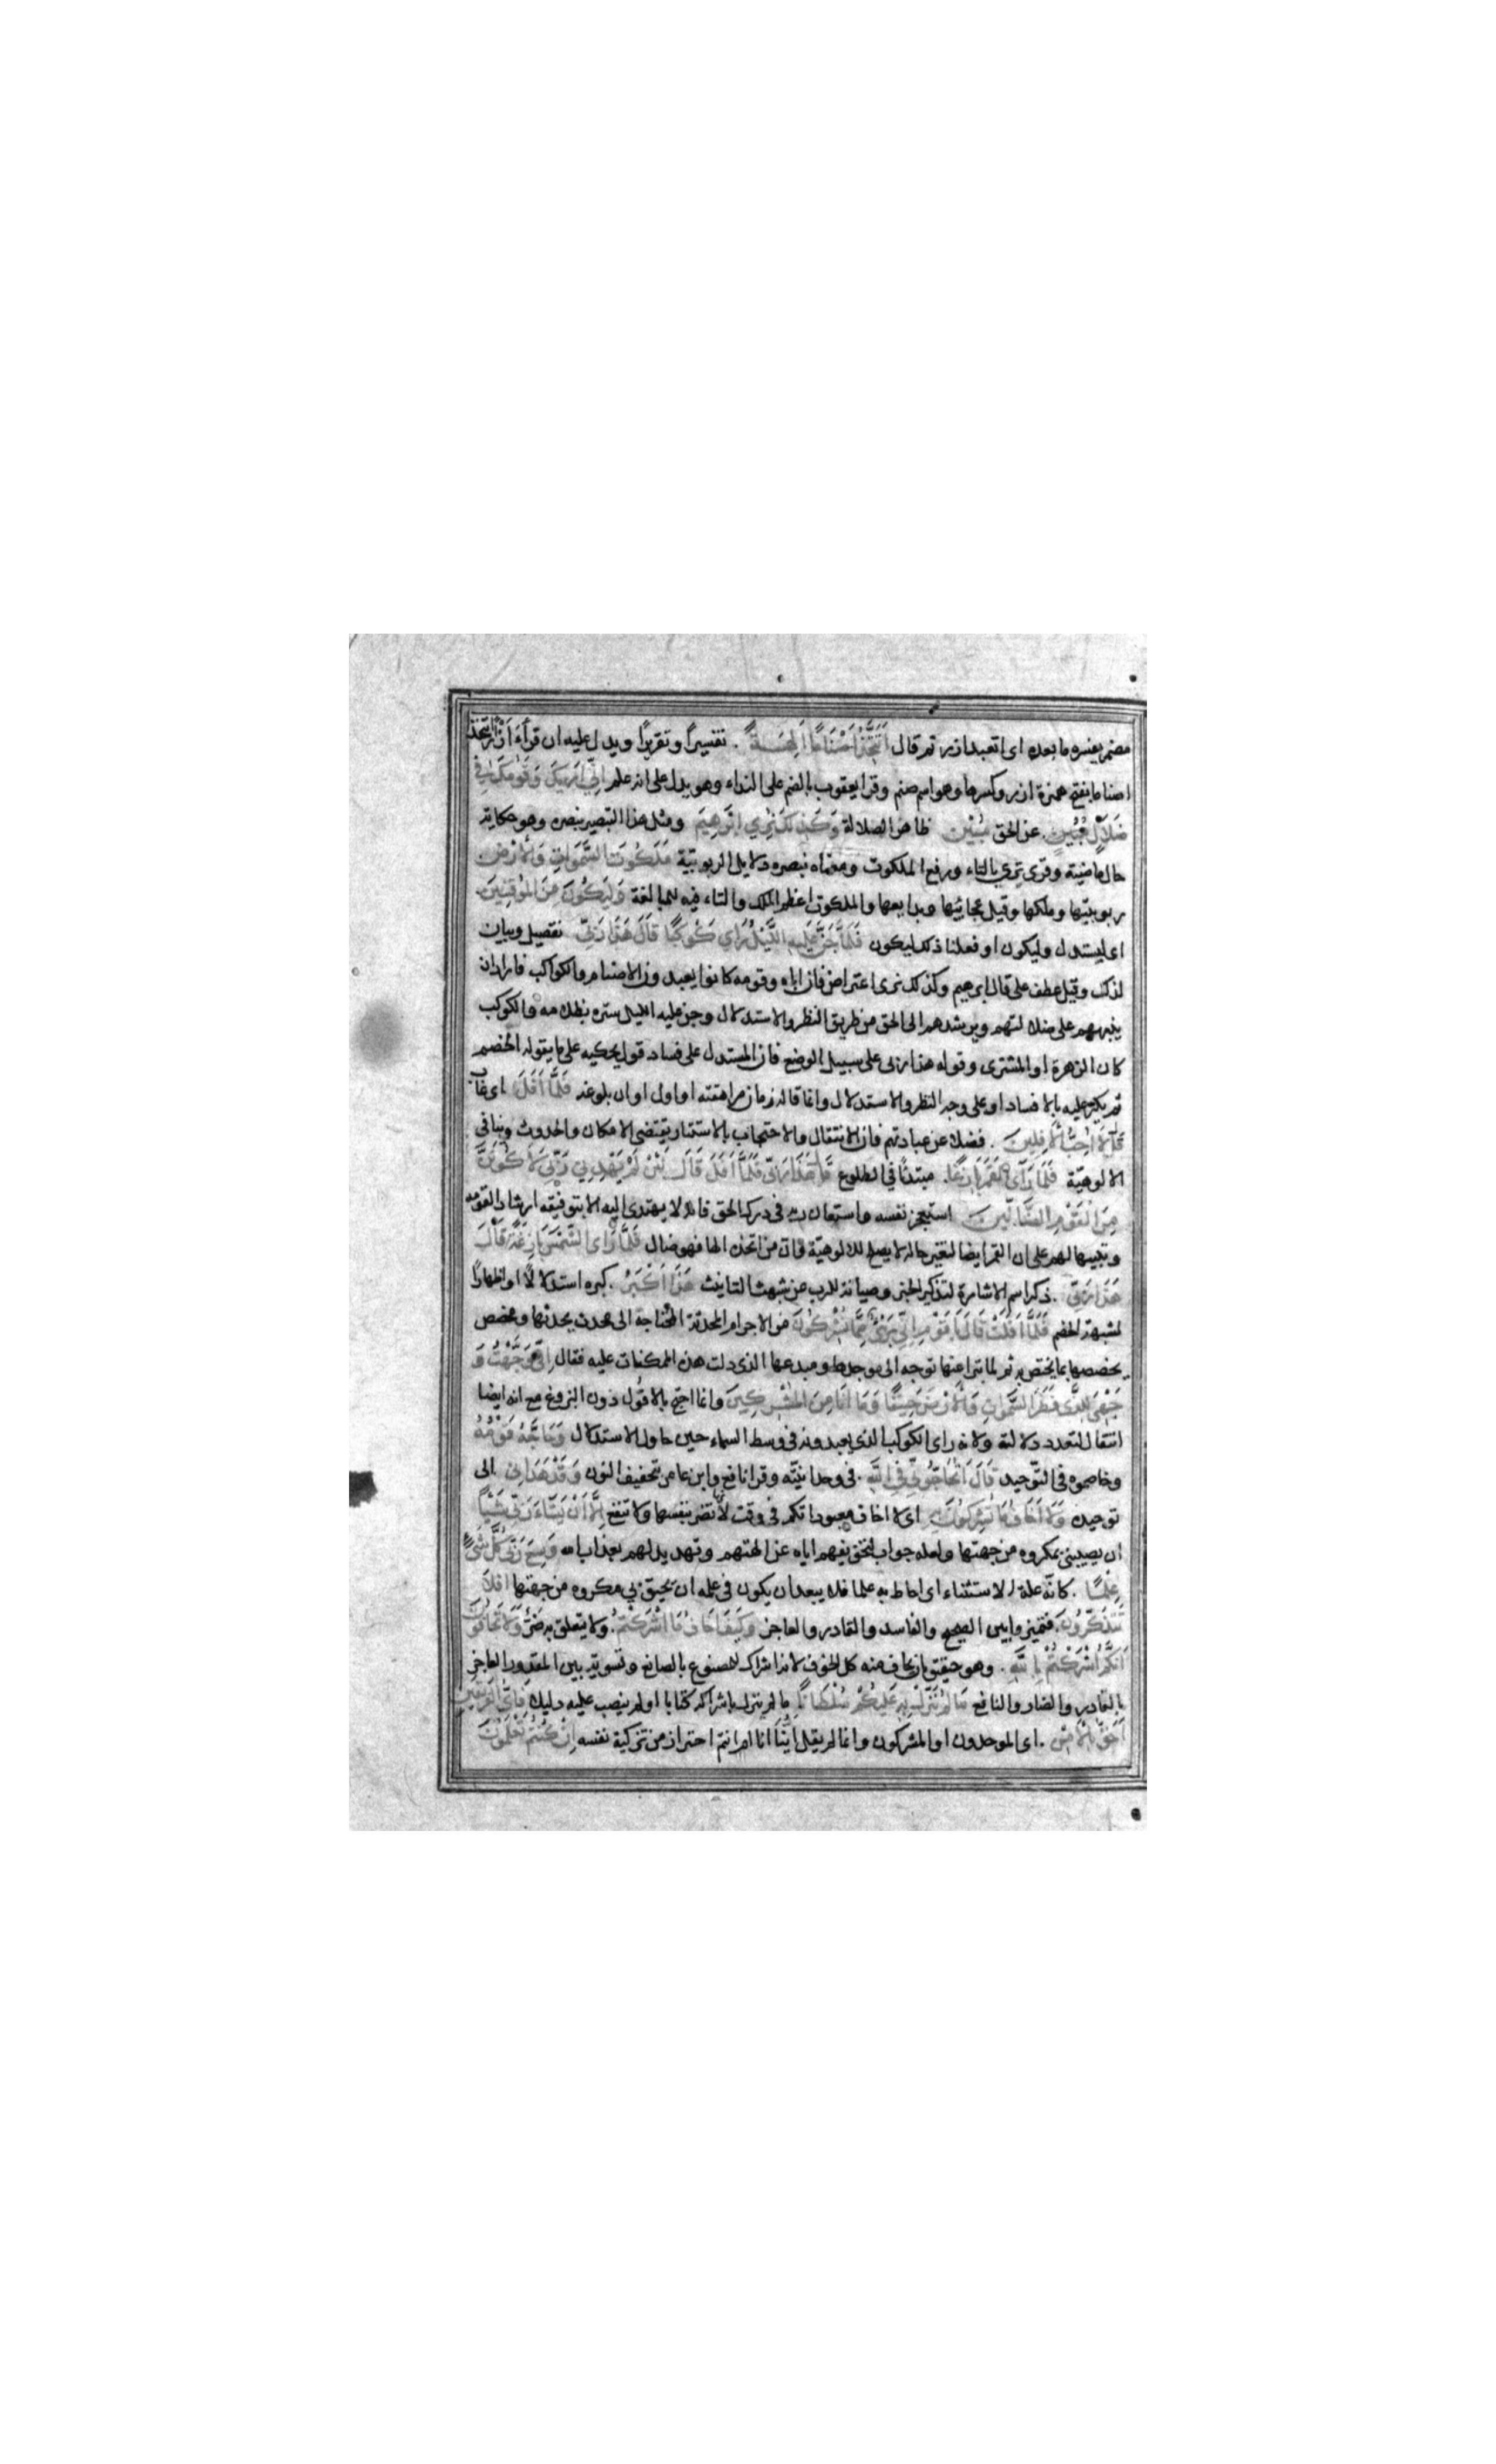 مضمر يفسره ما بعده اى اتعبد ازر ثم قال اَتَتَّخِذُ اَصْنَامًا اٰلِهَةً . تفسيرًا وتقريرًا ويدل عليه ان قرأءَ اَزْرًا تتخذ
اصناما بفتح همزة ازر وكسرها وهو اسم صنم وقرا يعقوب بالضم على النداء وهو يدل على انه علم اِنِّى اَرٰيكَ وَقَوْمَكَ فِى
ضَلَالٍ مُبِينٍ . عن الحق مُبِيْنٍ ظاهر الضلالة وَكَذٰلِكَ نُرِي اِبْرٰهِيمَ ومثل هذا التبصير نبصره وهو حكاية
حال ماضية وقرى ترى بالتاء ورفع الملكوت ومعناه تبصره دلايل الربوبية مَلَكُوتَ السَّمٰوَاتِ وَالْاَرْضِ
ربوبيتها وملكها وقيل عجائبها وبدايعها والملكوت اعظم الملك والتاء فيه للمبالغة وَلِيَكُونَ مِنَ الْمُوقِنِينَ
اى ليستدل وليكون او فعلنا ذلك ليكون فَلَمَّا جَنَّ عَلَيْهِ الَّيْلُ رَاٰى كَوْكَبًا قَالَ هٰذَا رَبِّى تفصيل وبيان
لذلك وقيل عطف على قال ابرهيم وكذلك نرى اعتراض فان اباه وقومه كانوا يعبدون الاصنام والكواكب فاراد ان
ينبههم على ضلالتهم ويرشدهم الى الحق من طريق النظر والاستدلال وجن عليه الليل ستره بظلامه والكوكب
كان الزهرة او المشترى وقوله هذا ربى على سبيل الوضع فان المستدل على فساد قول يحكيه على ما يقوله الخصم
ثم يكر عليه بالافساد او على وجه النظر والاستدلال وانما قاله زمان مراهقته او اول اوان بلوغه فَلَمَّا اَفَلَ اى غاب
قَالَ لَا اُحِبُّ الْاٰفِلِينَ . فضلا عن عبادتهم فان الانتقال والاحتجاب بالاستتار يقتضى الامكان والحدوث وينافى
الالوهيّة فَلَمَّا رَاَى الْقَمَرَ بَازِغًا . مبتدئًا فى الطلوع قَالَ هٰذَا رَبِّى فَلَمَّا اَفَلَ قَالَ لَئِنْ لَمْ يَهْدِنِي رَبِّى لَاَكُونَنَّ
مِنَ الْقَوْمِ الضَّالِّينَ استعجز نفسه واستعان بربه فى درك الحق فانه لا يهتدى اليه الا بتوفيقه ارشادا لقومه
وتنبيها لهم على ان القمر ايضا لتغير حاله لا يصلح للالوهيّة وان من اتخذه الها فهو ضال فَلَمَّا رَاَى الشَّمْسَ بَازِغَةً قَالَ
هٰذَا رَبِّى . ذكر اسم الاشارة لتذكير الخبر وصيانة للرب عن شبهة التانيث هٰذَا اَكْبَرُ . كبره استدلالًا او اظهارًا
لشبهة الخصم فَلَمَّا اَفَلَتْ قَالَ يَا قَوْمِ اِنِّى بَرِىءٌ مِمَّا تُشْرِكُونَ من الاجرام المحدثة المحتاجة الى محدث يحدثها ومخصص
يخصصها بما يختص به ثم لما تبرا عنها توجه الى موجدها ومبدعها الذى دلت هذه الممكنات عليه فقال اِنِّى وَجَّهْتُ وَ
جْهِىَ لِلَّذِى فَطَرَ السَّمٰوَاتِ وَالْاَرْضَ حَنِيفًا وَمَا اَنَا مِنَ الْمُشْرِكِينَ وانما احتج بالافول دون البزوغ مع انه ايضا
انتقال لتعدد دلالته ولانه راى الكوكب الذى يعبدونه فى وسط السماء حين حاول الاستدلال وَحَاجَّهُ قَوْمُهُ
وخاصموه فى التوحيد قَالَ اَتُحَاجُّونِّى فِى اللّٰهِ . فى وحدانيّته وقرا نافع وابن عامر بتخفيف النون وَقَدْ هَدَانِ الى
توحيده وَلَا اَخَافُ مَا تُشْرِكُونَ بِهِ اى لا اخاف معبوداتكم فى وقت لانها لا تضر بنفسها ولا تنفع اِلَّا اَنْ يَشَاءَ رَبِّى شَيْئًا
ان يصيبنى بمكروه من جهتها ولعله جواب لتخويفهم اياه عن الهتهم وتهديد لهم بعذاب الله وَسِعَ رَبِّى كُلَّ شَىْءٍ
عِلْمًا . كانّه علة الاستثناء اى احاط به علما فلا يبعد ان يكون فى علمه ان يحيق بى مكروه من جهتها اَفَلَا
تَتَذَكَّرُونَ . فتميزوا بين الصحيح والفاسد والقادر والعاجز وَكَيْفَ اَخَافُ مَا اَشْرَكْتُمْ . ولا يتعلق به ضرٌّ وَلَا تَخَافُونَ
اَنَّكُمْ اَشْرَكْتُمْ بِاللّٰهِ . وهو حقيق بان يخاف منه كل الخوف لانه اشراك للمصنوع بالصانع وتسوية بين المقدور العاجز
بالقادر والضار والنافع مَا لَمْ يُنَزِّلْ بِهِ عَلَيْكُمْ سُلْطَانًا ما لم ينزل باشراكه كتابا او لم ينصب عليه دليلا فَاَىُّ الْفَرِيقَيْنِ
اَحَقُّ بِالْاَمْنِ . اى الموحدون او المشركون وانما لم يقل ايّنا انا ام انتم احترازا من تزكية نفسه اِنْ كُنْتُمْ تَعْلَمُونَ